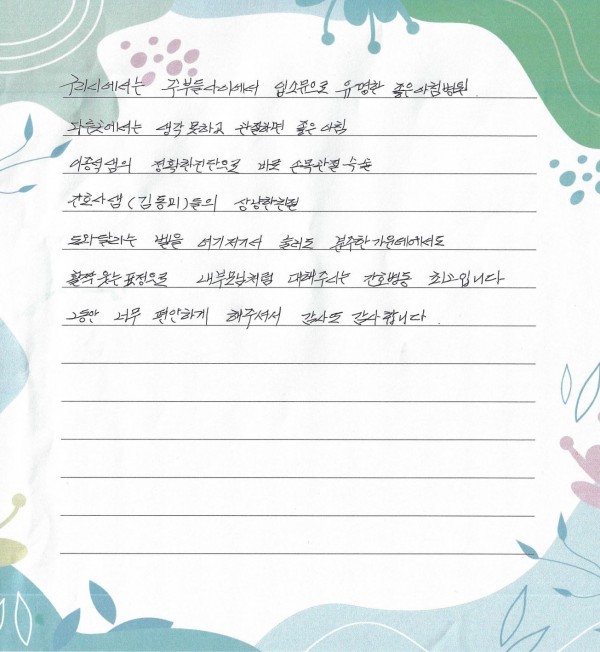 구리시에서는 주부들사이에서 입소문으로 유명한 좋은아침병원.
다른곳에서는 생각 못하고 관절하면 좋은아침
정확한진단으로 바로 손목관절수술
간호사샘(김동미)들의 상냥한친절
도와달라는 벨을 여기저기서 눌러도 분주한가운데에서도
활짝 웃는표정으로 내부모님처럼 대해주시는 간호병동 최고입니다
그동안 너무 편안하게 해주셔서 감사또 감사합니다.